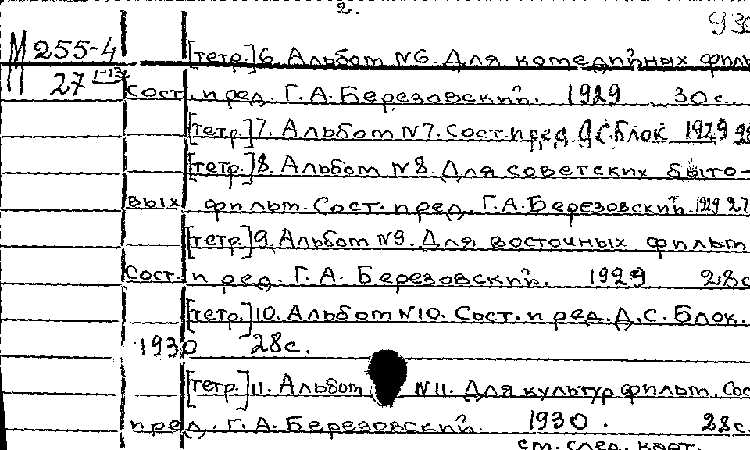 2.
М 255-4
27
[тетр.] 6. Альбом №6. Для комедийных фильм
Сост. и ред. Г.А. Березовский. 1929 30с.
[тетр.] 7. Альбом №7. Сост. и ред. Д.С. Блок 1929
[тетр.] 8. Альбом №8. Для советских быто-
вых фильм. Сост. и ред. Г.А. Березовский. 1929 27
[тетр.] 9. Альбом №9. Для восточных фильм
Сост. и ред. Г.А. Березовский. 1929 28с
[тетр.] 10. Альбом №10. Сост. и ред. Д.С. Блок.
1930 28с.
[тетр.] 11. Альбом №11. Для культур фильм. Сос
и ред. Г.А. Березовский. 1930. 28с.
см. след. карт.